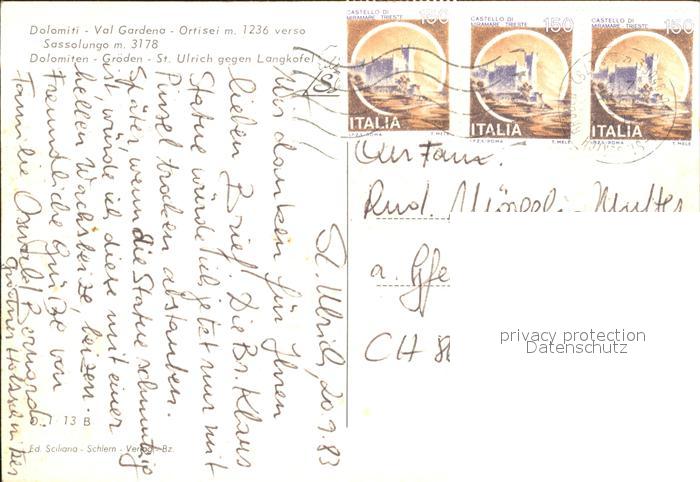 Dolomiti - Val Gardena - Ortisei m. 1236 verso
Sassolungo m. 3178
Dolomiten - Gröden - St. Ulrich gegen Langkofel
St. Ulrich, 20.9.83
Wir danken für Ihren
lieben Brief. Die Br. Klaus
Statue würde ich jetzt nur mit
Pinsel trocken abstauben.
Später wenn die Statue schmutzig
ist, würde ich diese mit einer
hellen Wachsbeize, beizen.
Freundliche Grüße von
Familie Oswald Bernardi
Grödner Holzschnitzer
D. 1 - 13 B
Ed. Sciliana - Schlern - Verlag - Bz.
CASTELLO DI
MIRAMARE TRIESTE
150
ITALIA
I.P.Z.S. ROMA T. MELE
CASTELLO DI
MIRAMARE TRIESTE
150
ITALIA
I.P.Z.S. ROMA T. MELE
CASTELLO DI
MIRAMARE TRIESTE
150
ITALIA
I.P.Z.S. ROMA T. MELE
Rud.
a. Gfe
CH 8
privacy protection
Datenschutz